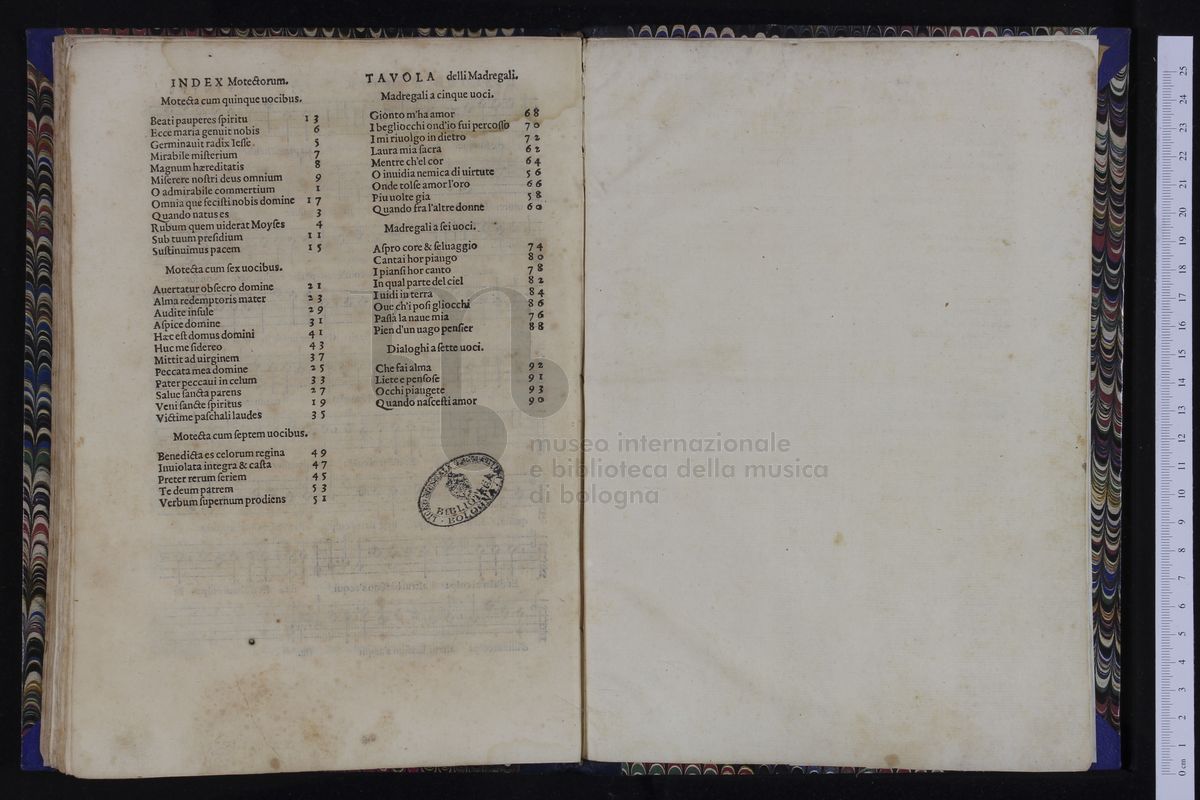 INDEX Motectorum.
Motecta cum quinque uocibus.
Beati pauperes ſpiritu 13
Ecce maria genuit nobis 6
Germinauit radix Ieſſe 5
Mirabile miſterium 7
Magnum hæreditatis 8
Miſerere noſtri deus omnium 9
O admirabile commertium 1
Omnia que feciſti nobis domine 17
Quando natus es 3
Rubum quem uiderat Moyſes 4
Sub tuum preſidium 11
Suſtinuimus pacem 15
Motecta cum ſex uocibus.
Auertatur obſecro domine 21
Alma redemptoris mater 23
Audite inſule 29
Aſpice domine 31
Hæc eſt domus domini 41
Huc me ſidereo 43
Mittit ad uirginem 37
Peccata mea domine 25
Pater peccaui in celum 33
Salue ſancta parens 27
Veni ſancte ſpiritus 19
Victime paſchali laudes 35
Motecta cum ſeptem uocibus.
Benedicta es celorum regina 49
Inuiolata integra & caſta 47
Preter rerum ſeriem 45
Te deum patrem 53
Verbum ſupernum prodiens 51
TAVOLA delli Madregali.
Madregali a cinque uoci.
Gionto m'ha amor 68
I begliocchi ond'io fui percoſſo 70
I mi riuolgo in dietro 72
Laura mia ſacra 62
Mentre ch'el cor 64
O inuidia nemica di uirtute 56
Onde tolſe amor l'oro 66
Piu uolte gia 58
Quando fra l'altre donne 60
Madregali a ſei uoci.
Aſpro core & ſeluaggio 74
Cantai hor piango 80
I pianſi hor canto 78
In qual parte del ciel 82
I uidi in terra 84
Oue ch'i poſi gliocchi 86
Paſſa la naue mia 76
Pien d'un uago penſier 88
Dialoghi a ſette uoci.
Che fai alma 92
Liete e penſoſe 91
Occhi piangete 93
Quando naſceſti amor 90
museo internazionale
e biblioteca della musica
di bologna
BIBLIOTECA
BOLOGNA
0 cm 1 2 3 4 5 6 7 8 9 10 11 12 13 14 15 16 17 18 19 20 21 22 23 24 25